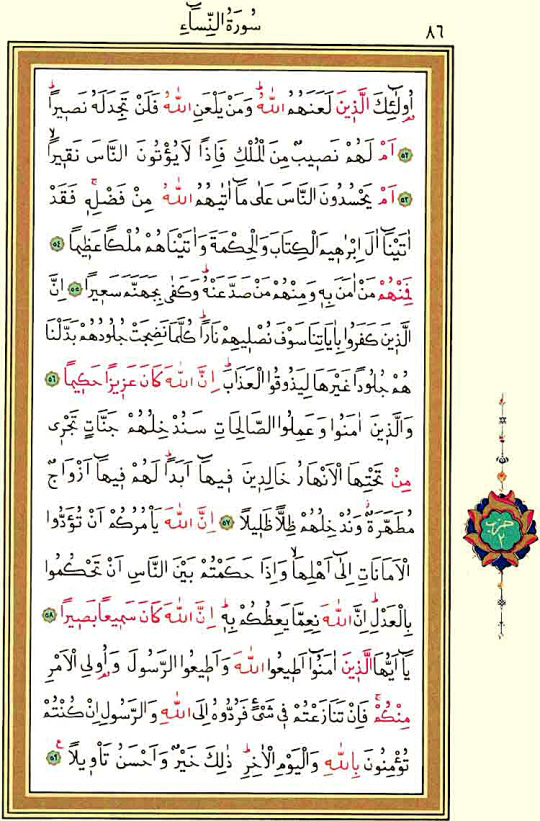 سُورَةُ النِّسَاءِ
٨٦
اُو۬لٰٓئِكَ الَّذ۪ينَ لَعَنَهُمُ اللّٰهُۜ وَمَنْ يَلْعَنِ اللّٰهُ فَلَنْ تَجِدَ لَهُ نَص۪يراًۜ
﴿٥٢﴾ اَمْ لَهُمْ نَص۪يبٌ مِنَ الْمُلْكِ فَاِذاً لَا يُؤْتُونَ النَّاسَ نَق۪يراًۙ
﴿٥٣﴾ اَمْ يَحْسُدُونَ النَّاسَ عَلٰى مَٓا اٰتٰيهُمُ اللّٰهُ مِنْ فَضْلِه۪ۚ فَقَدْ
اٰتَيْنَٓا اٰلَ اِبْرٰه۪يمَ الْكِتَابَ وَالْحِكْمَةَ وَاٰتَيْنَاهُمْ مُلْكاً عَظ۪يماً ﴿٥٤﴾
فَمِنْهُمْ مَنْ اٰمَنَ بِه۪ وَمِنْهُمْ مَنْ صَدَّ عَنْهُۜ وَكَفٰى بِجَهَنَّمَ سَع۪يراً ﴿٥٥﴾ اِنَّ
الَّذ۪ينَ كَفَرُوا بِاٰيَاتِنَا سَوْفَ نُصْل۪يهِمْ نَاراًۜ كُلَّمَا نَضِجَتْ جُلُودُهُمْ بَدَّلْنَا
هُمْ جُلُوداً غَيْرَهَا لِيَذُوقُوا الْعَذَابَۜ اِنَّ اللّٰهَ كَانَ عَز۪يزاً حَك۪يماً ﴿٥٦﴾
وَالَّذ۪ينَ اٰمَنُوا وَعَمِلُوا الصَّالِحَاتِ سَنُدْخِلُهُمْ جَنَّاتٍ تَجْر۪ي
مِنْ تَحْتِهَا الْاَنْهَارُ خَالِد۪ينَ ف۪يهَٓا اَبَداًۜ لَهُمْ ف۪يهَٓا اَزْوَاجٌ
مُطَهَّرَةٌۘ وَنُدْخِلُهُمْ ظِلاًّ ظَل۪يلاً ﴿٥٧﴾ اِنَّ اللّٰهَ يَأْمُرُكُمْ اَنْ تُؤَدُّوا
الْاَمَانَاتِ اِلٰٓى اَهْلِهَاۙ وَاِذَا حَكَمْتُمْ بَيْنَ النَّاسِ اَنْ تَحْكُمُوا
بِالْعَدْلِۜ اِنَّ اللّٰهَ نِعِمَّا يَعِظُكُمْ بِه۪ۜ اِنَّ اللّٰهَ كَانَ سَم۪يعاً بَص۪يراً ﴿٥٨﴾
يَٓا اَيُّهَا الَّذ۪ينَ اٰمَنُٓوا اَط۪يعُوا اللّٰهَ وَاَط۪يعُوا الرَّسُولَ وَاُو۬لِي الْاَمْرِ
مِنْكُمْۚ فَاِنْ تَنَازَعْتُمْ ف۪ي شَيْءٍ فَرُدُّوهُ اِلَى اللّٰهِ وَالرَّسُولِ اِنْ كُنْتُمْ
تُؤْمِنُونَ بِاللّٰهِ وَالْيَوْمِ الْاٰخِرِۜ ذٰلِكَ خَيْرٌ وَاَحْسَنُ تَأْو۪يلاً۟ ﴿٥٩﴾
حزب
٢